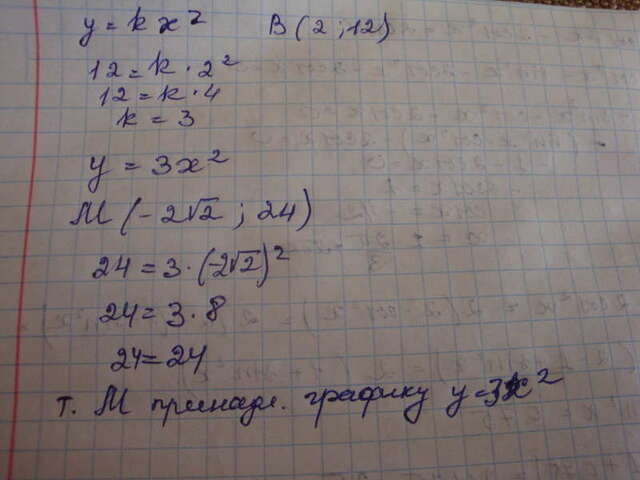 y = kx² B (2 ; 12)
12 = k · 2²
12 = k · 4
k = 3
y = 3x²
M (-2√2 ; 24)
24 = 3 · (-2√2)²
24 = 3 · 8
24 = 24
т. М принадл. графику y=3x²